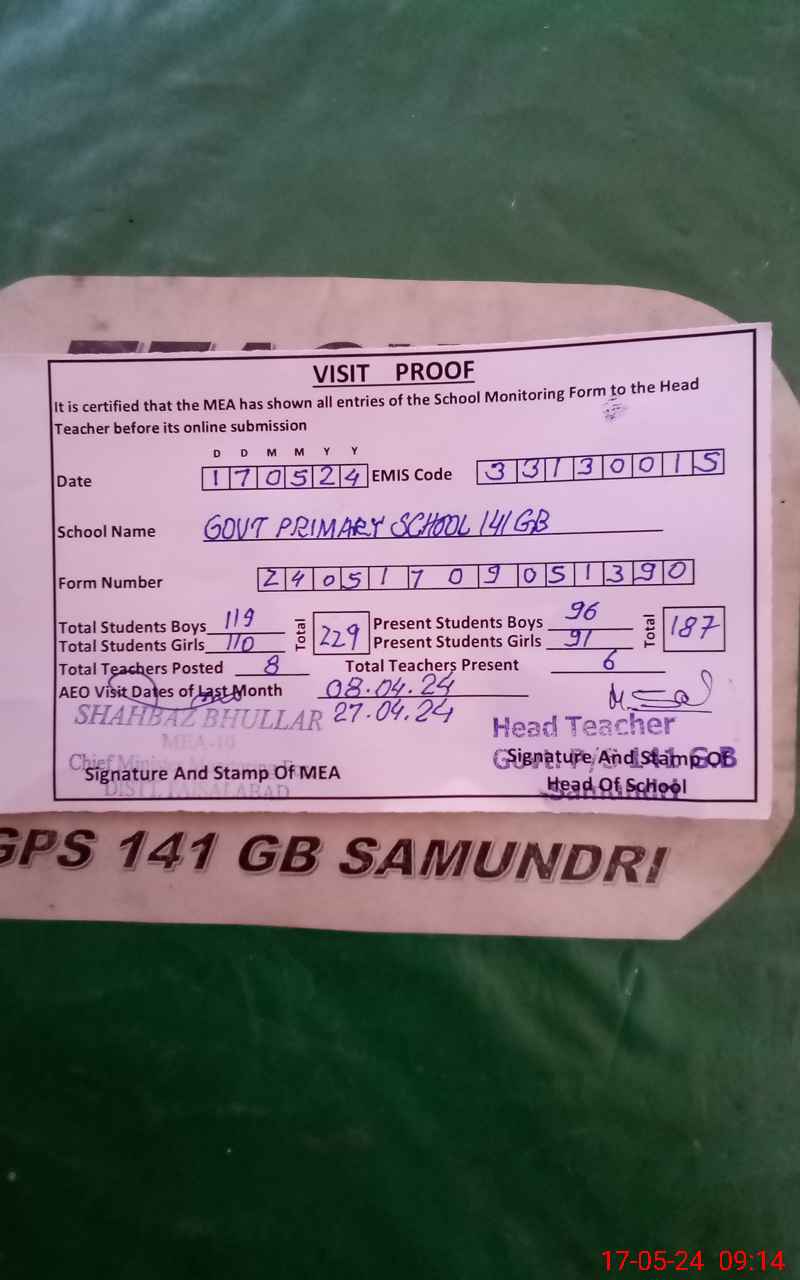 VISIT PROOF
It is certified that the MEA has shown all entries of the School Monitoring Form to the Head
Teacher before its online submission
D D M M Y Y
Date 170524 EMIS Code 33130015
School Name GOVT PRIMARY SCHOOL 141 GB
Form Number 24051709051390
Total Students Boys 119 Total 229 Present Students Boys 96 Total 187
Total Students Girls 110 Present Students Girls 91
Total Teachers Posted 8 Total Teachers Present 6
AEO Visit Dates of Last Month 08.04.24
27.04.24
SHAHBAZ BHULLAR
MEA-10
Chief Minister
DISTT. FAISALABAD
Signature And Stamp Of MEA
Head Teacher
Govt. P/S 141 GB
Samundri
Signature And Stamp Of
Head Of School
GPS 141 GB SAMUNDRI
17-05-24 09:14